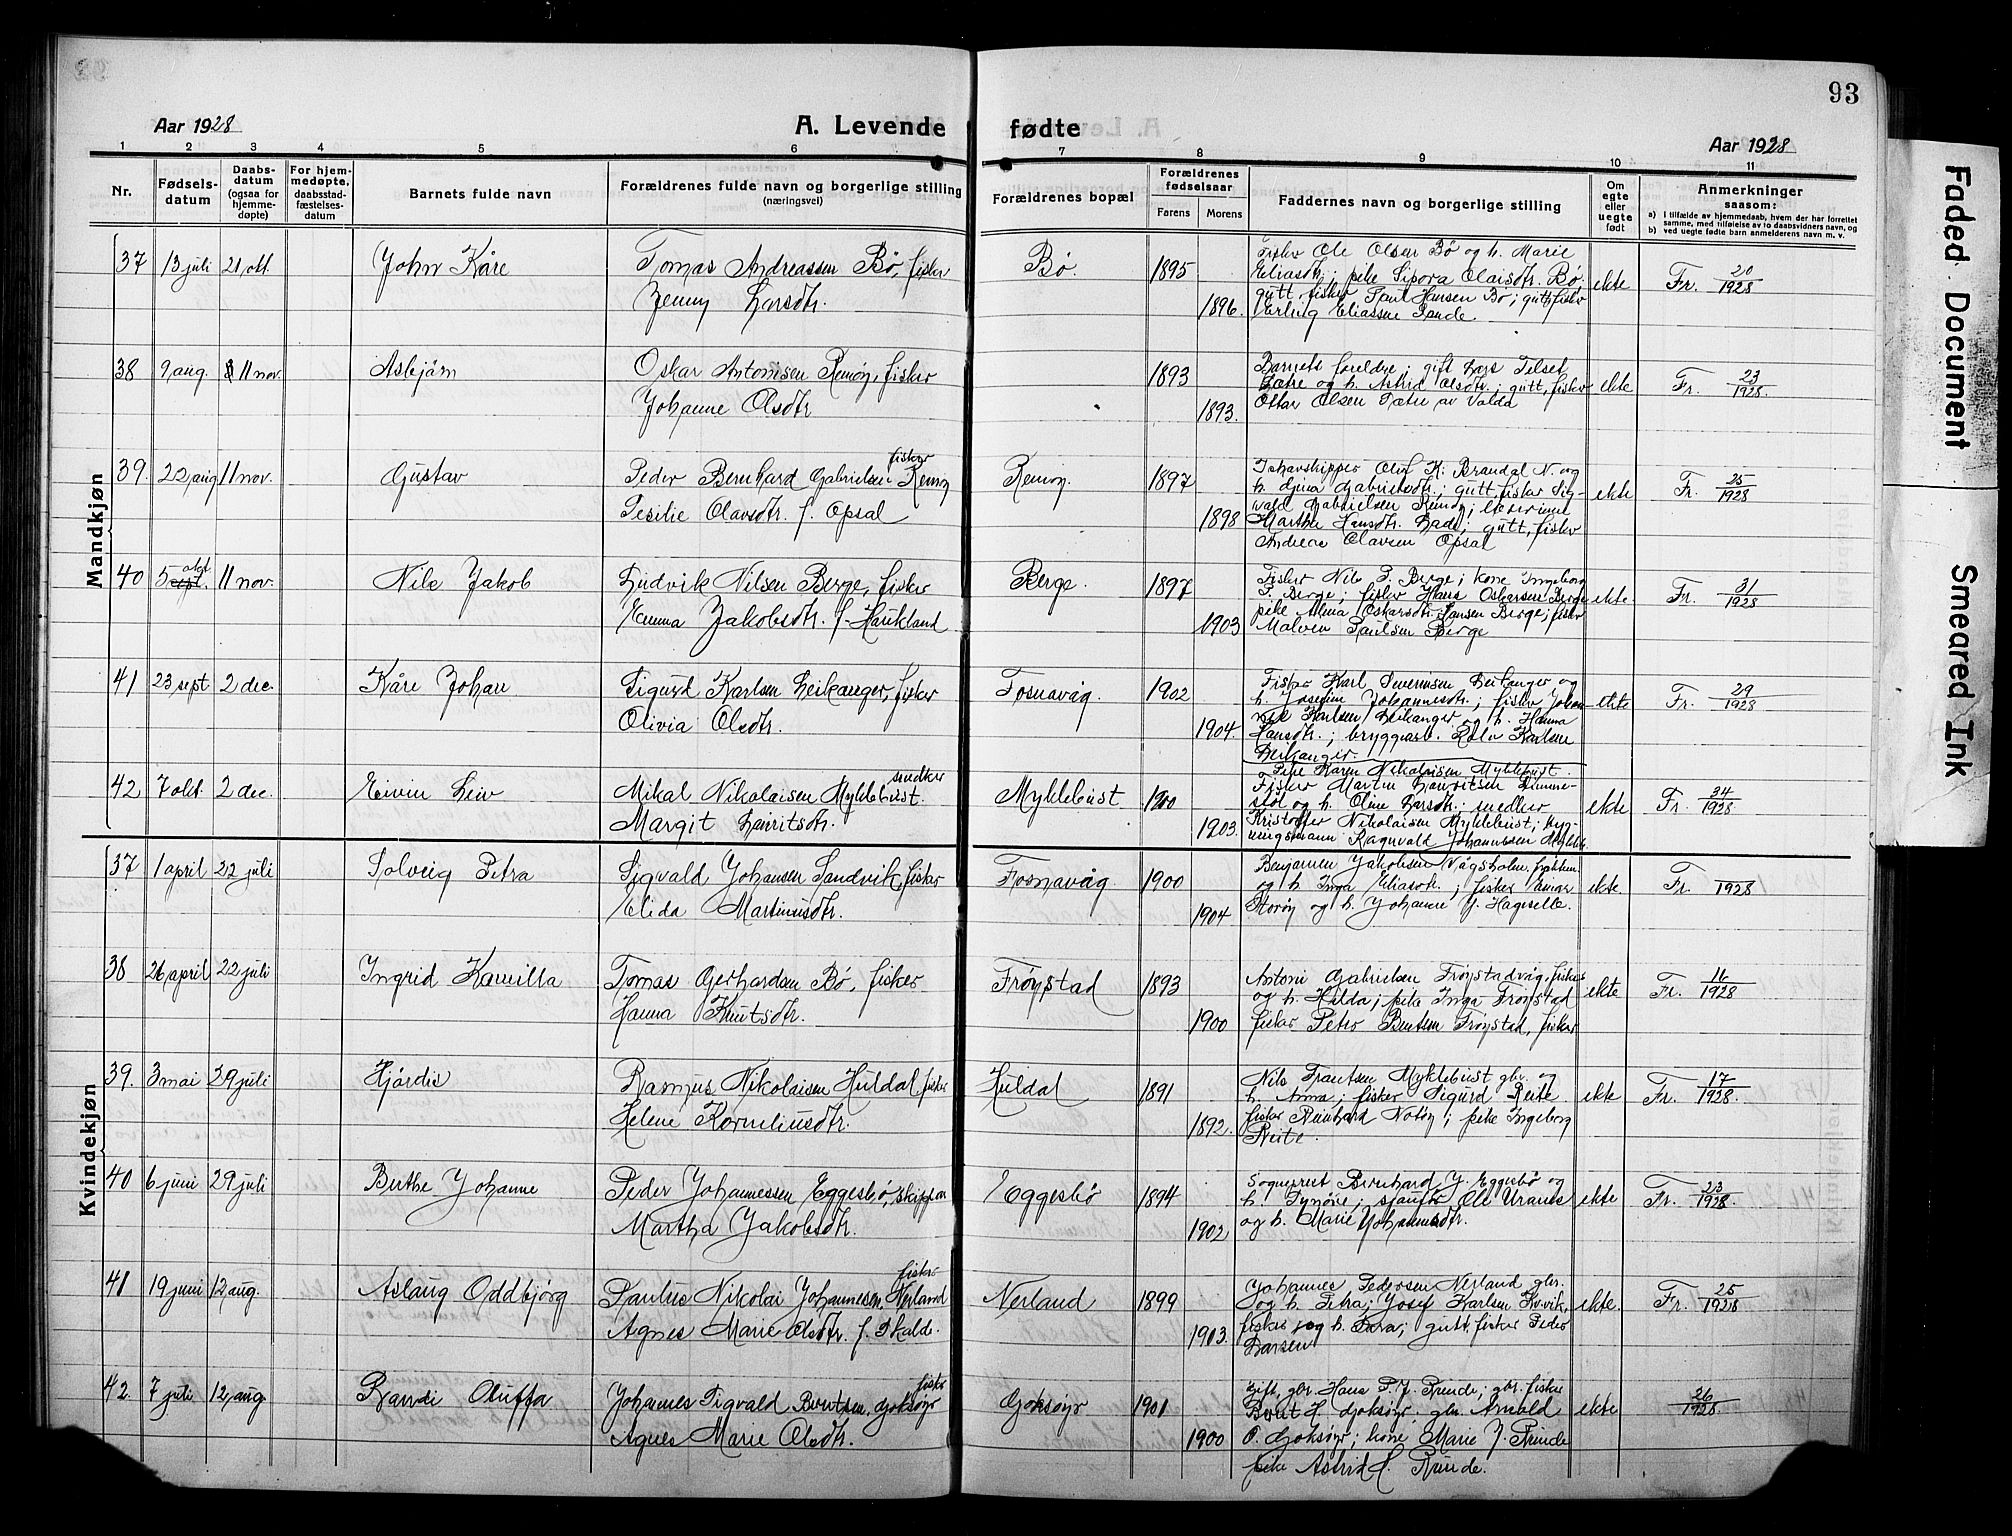 93
Aar 1928
A. Levende fødte
Aar 1928
1 2 3 4 5 6 7 8 9 10 11
Nr.
Fødsels-
datum
Daabs-
datum
(ogsaa for
hjemme-
døpte)
For hjem-
medøpte,
daabsstad-
fæstelses-
datum
Barnets fulde navn
Forældrenes fulde navn og borgerlige stilling
(næringsvei)
Forældrenes bopæl
Forældrenes
fødselsaar
Farens Morens
Faddernes navn og borgerlige stilling
Om
egte
eller
uegte
født
Anmerkninger
saasom:
a) I tilfælde av hjemmedaab, hvem der har forrettet
samme, med tilføielse av to daabsvidners navn, og
b) ved uegte fødte barn anmelderens navn m. v.
Mandkjøn
37 13 juli 21 okt. John Kåre
Tomas Andreassen Bø, fisker
Jenny Larsdtr.
Bø. 1895 1896.
Fisker Ole Olsen Bø og h. Marie
Eliasdtr.; pike Sipora Olaisdtr. Bø;
gutt, fisker Paul Hansen Bø; gutt, fisker
Erling Eliassen Sande
ekte Fr. 20/1928
38 9 aug. 11 nov. Asbjørn
Oskar Antonisen Remøy, fisker
Johanne Olsdtr
1893 1893.
Barnets foreldre; gift Lars
og h. Astrid Olsdtr.; gutt, fisker
Ottar Olsen av Volda
ekte Fr. 23/1928.
39. 22 aug 11 nov. Gustav
fisker
Peder Bernhard Gabrielsen Remøy
Pesilie Olavsdtr. f. Opsal
Remøy. 1897 1898
Ishavskipper Olaf K. Brandal N. og
h. Gabrielsdtr.; gutt, fisker Sig-
vald Gabrielsen Remøy;
Marthe Hansdtr. ; gutt, fisker
Andreas Olavsen Opsal
ekte Fr. 25/1928
40 5 okt sept. 11 nov. Nils Jakob
Ludvik Nilsen Berge, fisker
Emma Jakobsdtr. f. Haukland
Berge. 1897 1903
Fisker Nils P. Berge; kone Ingeborg
P. Berge; fisker Hans Oskarsen Berge
pike Alma Oskarsdtr. Hansen Berge; fisker
Malvin Paulsen Berge
ekte. Fr. 31/1928
41 23 sept 2 dec. Kåre Johan
Sigurd Karlsen Leikanger, fisker
Olivia Olsdtr.
Fosnavåg. 1902 1904.
Fisker Karl Severinsen Leikanger og
h. Josefine Johannesdtr.; fisker Johan-
nes Karlsen Leikanger og h. Hanna
Hansdtr.; bryggearb. Rolv Karlsen
Leikanger.
ekte Fr. 29/1928
42 7 okt. 2 dec. Eivin Leiv
snedker
Mikal Nikolaisen Myklebust.
Margit Lauritsdtr.
Myklebust 1900 1903.
Pike Karen Nikolaisen Myklebust.
Fisker Martin Lauritsen
og h. Oline Larsdtr.; snedker
Kristoffer Nikolaisen Myklebust; byg-
ningsmann Ragnvald Johannessen Mykleb.
ekte Fr. 34/1928
Kvindekjøn
37 1 april 22 juli Solveig Petra
Sigvald Johansen Sandvik, fisker
Elida Martinusdtr.
Fosnavåg 1900 1904
Benjamin Jakobsen Vågsholm,
og h. Inga Eliasdtr.; fisker Einar
Storøy og h. Johanne J. Hageselle.
ekte. Fr. 1928
38 26 april 22 juli Ingrid Kamilla
Tomas Gerhardsen Bø, fisker
Hanna Knutsdtr.
Frøystad 1893 1900
Antoni Gabrielsen Frøystadvåg, fisker
og h. Hilda; pike Inga Frøystad
fisker Peter Bentsen Frøystad, fisker
ekte Fr. 16/1928
39. 3 mai 29 juli Hjørdis
Rasmus Nikolaisen Huldal, fisker
Helene Korneliusdtr.
Huldal 1891 1892.
Nils Frantsen Myklebust gbr. og
h. Anna; fisker Sigurd Reite
fisker Reinhard Notøy; pike Ingeborg
Reite.
ekte Fr. 17/1928.
40 6 juni 29 juli Berthe Johanne
Peder Johannessen Eggesbø, skipper
Martha Jakobsdtr.
Eggesbø 1894 1902
Sogneprest Bernhard J. Eggesbø og
h. Synøve; Ole Uranes
og h. Marie Johannesdtr.
ekte Fr. 23/1928
41 19 juni 12 aug. Aslaug Oddbjørg
fisker
Paulus Nikolai Johannesen Nerland
Agnes Marie Olsdtr. f. Skalde.
Nerland 1899 1903.
Johannes Pedersen Nerland gbr.
og h. Petra; Josef Karlsen
fisker og h. Sara; gutt, fisker Peder
Larsen
ekte. Fr. 25/1928
42. 7 juli 12 aug. Randi Oluffa
fisker
Johannes Sigvald Berntsen Gjoksøyr
Agnes Marie Olsdtr.
Gjoksøyr 1901 1900
Gift, gbr. Hans P. J. Runde; gbr. fisker
Bernt H. Gjoksøyr; gbr. Arnold
O. Gjoksøyr; kone Marie J. Runde
pike Astrid H. Runde.
ekte 26/1928.
Faded Document
Smeared Ink